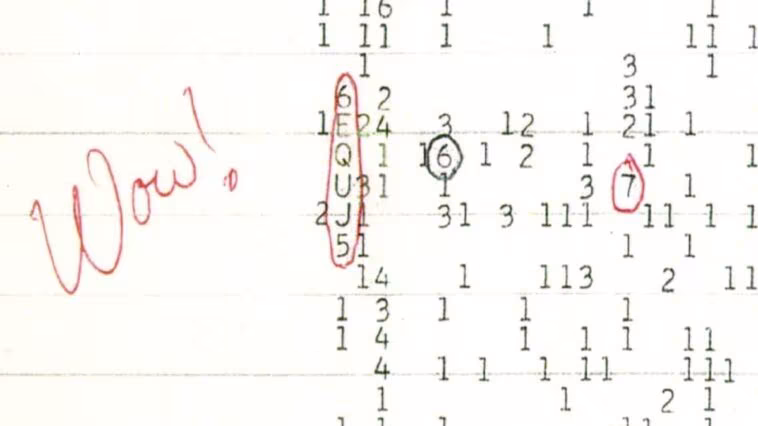 1 16 1 1 1
1 11 1 1 11 1
1 3 1
6 2 31
1E24 3 12 1 21 1
Q 1 16 1 2 1 1 1
U31 1 3 7 1
2J1 31 3 111 11 1 1
51 1 1
14 1 113 2 11
1 3 1 1 1
1 4 1 1 1 11
4 1 1 1 11 111
1 1 2 1
Wow!